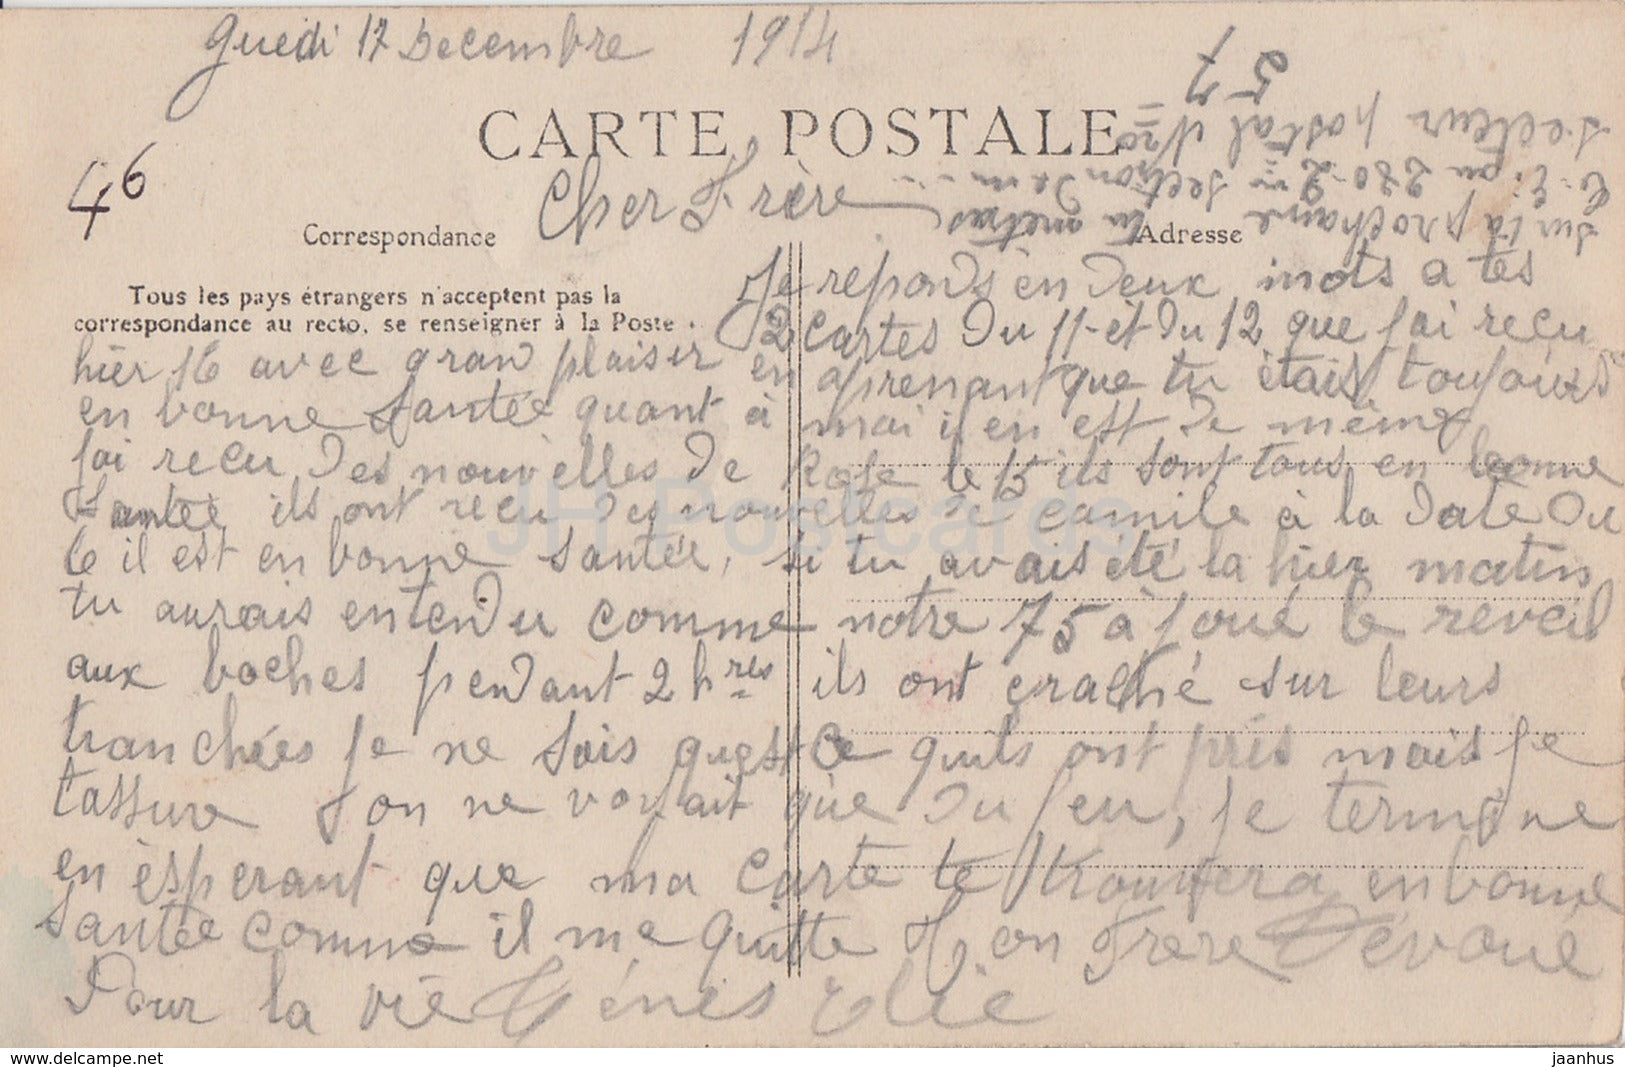 Guedi 17 Decembre 1914
CARTE POSTALE
46
Cher Frère
Correspondance
Adresse
Tous les pays étrangers n'acceptent pas la
correspondance au recto, se renseigner à la Poste.
Sur la prochaine tu mettras
section
secteur postal
57
Je reponds en deux mots a tes
2 cartes du 11 et du 12 que jai recu
hier 16 avec gran plaisir en aprenant que tu étais toujours
en bonne santée quant à moi il en est de même
jai recu des nouvelles de Rose le 15 ils sont tous en bonne
santée ils ont recu des nouvelles de camile à la date du
6 il est en bonne santée, si tu avais été la hier matin
tu aurais entendu comme notre 75 à joué le reveil
aux boches pendant 2 hres ils ont craché sur leurs
tranchées je ne sais quest ce quils ont pris mais je
tassure on ne voyait que du feu, je termine
en èsperant que ma carte te trouvera en bonne
santée comme il me quitte Ton Frère Dévoué
Pour la vie Génès Elie
JH Postcards
https://www.delcampe.net
jaanhus